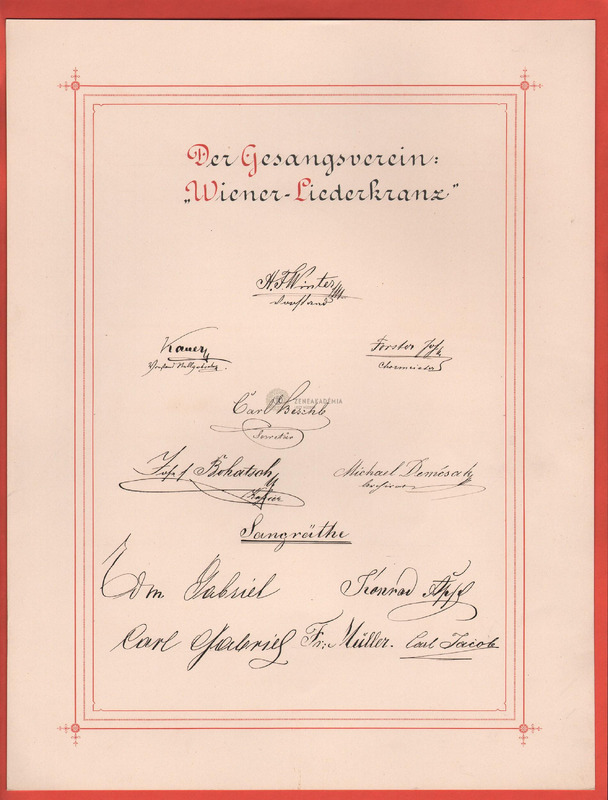 Der Gesangsverein:
„Wiener-Liederkranz"
H. F. Winter
Vorstand
Kauer
Vorstand Stellvertreter
Forster Jos.
Chormeister
Carl
ZENEAKADÉMIA
Secretär
Josef Bohatsch
Kassier
Michael Demcsak
Archivar
Sangräthe
Edm Gabriel
Konrad Apfl
Carl Gabriel Fr: Müller. Carl Jacob